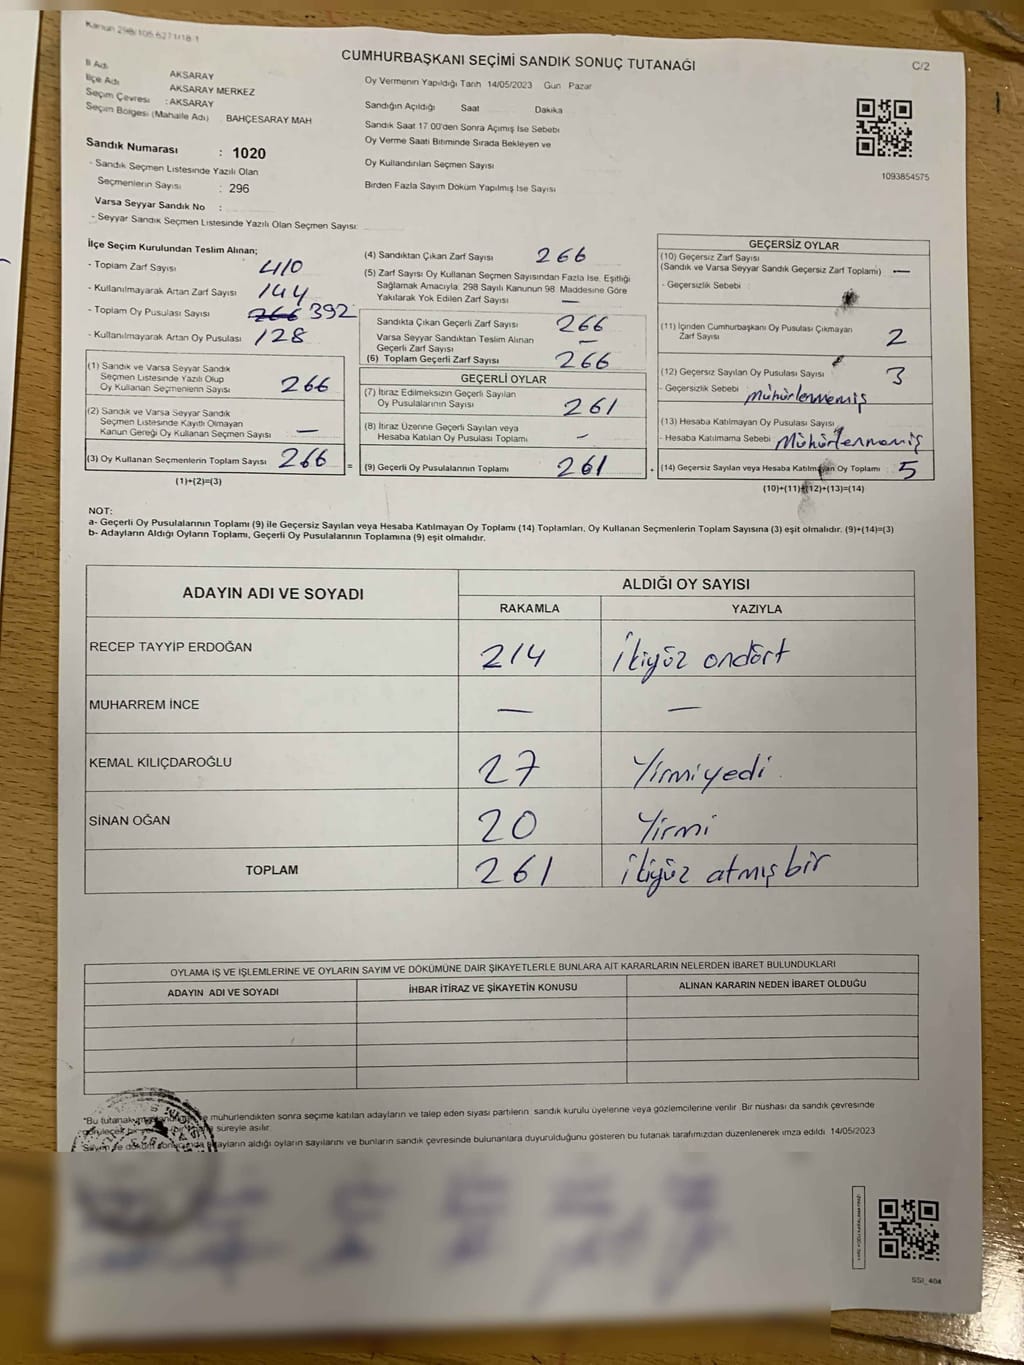 Kanun 298/105,6271/18-1
CUMHURBAŞKANI SEÇİMİ SANDIK SONUÇ TUTANAĞI
C/2
İl Adı AKSARAY
İlçe Adı AKSARAY MERKEZ
Seçim Çevresi : AKSARAY
Seçim Bölgesi (Mahalle Adı) BAHÇESARAY MAH
Oy Vermenin Yapıldığı Tarih 14/05/2023 Gün Pazar
Sandığın Açıldığı Saat Dakika
Sandık Saat 17:00'den Sonra Açılmış İse Sebebi
Oy Verme Saati Bitiminde Sırada Bekleyen ve
Oy Kullandırılan Seçmen Sayısı
Birden Fazla Sayım Döküm Yapılmış İse Sayısı
1093854575
Sandık Numarası : 1020
- Sandık Seçmen Listesinde Yazılı Olan
Seçmenlerin Sayısı : 296
Varsa Seyyar Sandık No :
- Seyyar Sandık Seçmen Listesinde Yazılı Olan Seçmen Sayısı:
İlçe Seçim Kurulundan Teslim Alınan;
- Toplam Zarf Sayısı 410
- Kullanılmayarak Artan Zarf Sayısı 144
- Toplam Oy Pusulası Sayısı 266 392
- Kullanılmayarak Artan Oy Pusulası 128
(1) Sandık ve Varsa Seyyar Sandık
Seçmen Listesinde Yazılı Olup
Oy Kullanan Seçmenlerin Sayısı 266
(2) Sandık ve Varsa Seyyar Sandık
Seçmen Listesinde Kayıtlı Olmayan
Kanun Gereği Oy Kullanan Seçmen Sayısı —
(3) Oy Kullanan Seçmenlerin Toplam Sayısı 266
(1)+(2)=(3)
(4) Sandıktan Çıkan Zarf Sayısı 266
(5) Zarf Sayısı Oy Kullanan Seçmen Sayısından Fazla İse, Eşitliği
Sağlamak Amacıyla; 298 Sayılı Kanunun 98. Maddesine Göre
Yakılarak Yok Edilen Zarf Sayısı —
Sandıkta Çıkan Geçerli Zarf Sayısı 266
Varsa Seyyar Sandıktan Teslim Alınan
Geçerli Zarf Sayısı —
(6) Toplam Geçerli Zarf Sayısı 266
GEÇERLİ OYLAR
(7) İtiraz Edilmeksizin Geçerli Sayılan
Oy Pusulalarının Sayısı 261
(8) İtiraz Üzerine Geçerli Sayılan veya
Hesaba Katılan Oy Pusulası Toplamı —
= (9) Geçerli Oy Pusulalarının Toplamı 261
GEÇERSİZ OYLAR
(10) Geçersiz Zarf Sayısı
(Sandık ve Varsa Seyyar Sandık Geçersiz Zarf Toplamı) —
- Geçersizlik Sebebi :
(11) İçinden Cumhurbaşkanı Oy Pusulası Çıkmayan
Zarf Sayısı 2
(12) Geçersiz Sayılan Oy Pusulası Sayısı 3
- Geçersizlik Sebebi : mühürlenmemiş
(13) Hesaba Katılmayan Oy Pusulası Sayısı
- Hesaba Katılmama Sebebi : Mühürlenmemiş
+ (14) Geçersiz Sayılan veya Hesaba Katılmayan Oy Toplamı : 5
(10)+(11)+(12)+(13)=(14)
NOT:
a- Geçerli Oy Pusulalarının Toplamı (9) ile Geçersiz Sayılan veya Hesaba Katılmayan Oy Toplamı (14) Toplamları, Oy Kullanan Seçmenlerin Toplam Sayısına (3) eşit olmalıdır. (9)+(14)=(3)
b- Adayların Aldığı Oyların Toplamı, Geçerli Oy Pusulalarının Toplamına (9) eşit olmalıdır.
ADAYIN ADI VE SOYADI ALDIĞI OY SAYISI
RAKAMLA YAZIYLA
RECEP TAYYİP ERDOĞAN 214 ikiyüz ondört
MUHARREM İNCE — —
KEMAL KILIÇDAROĞLU 27 Yirmiyedi
SİNAN OĞAN 20 Yirmi
TOPLAM 261 ikiyüz atmışbir
OYLAMA İŞ VE İŞLEMLERİNE VE OYLARIN SAYIM VE DÖKÜMÜNE DAİR ŞİKAYETLERLE BUNLARA AİT KARARLARIN NELERDEN İBARET BULUNDUKLARI
ADAYIN ADI VE SOYADI İHBAR İTİRAZ VE ŞİKAYETİN KONUSU ALINAN KARARIN NEDEN İBARET OLDUĞU
*Bu tutanak mühürlendikten sonra seçime katılan adayların ve talep eden siyasi partilerin sandık kurulu üyelerine veya gözlemcilerine verilir. Bir nüshası da sandık çevresinde
süreyle asılır.
adayların aldığı oyların sayılarını ve bunların sandık çevresinde bulunanlara duyurulduğunu gösteren bu tutanak tarafımızdan düzenlenerek imza edildi. 14/05/2023
SSI_404